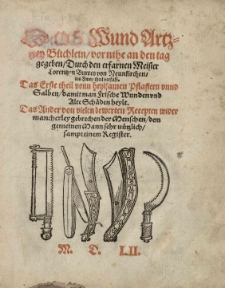 Das Wund Artz-
ney Büchlein / vor nihe an den tag
gegeben / Durch den erfarnen Meister
von Neunkirchen /
inn zwey theil
Das Erste theil vonn heylsamen Pflastern vnnd
Salben / damit man frische Wunden vnd
Alte Schäden heylt.
Das Ander von vielen bewerten Recepten wider
mancherley gebrechen der Menschen / dem
gemeinen Mann sehr nützlich /
sampt einem Register.
M. D. LII.